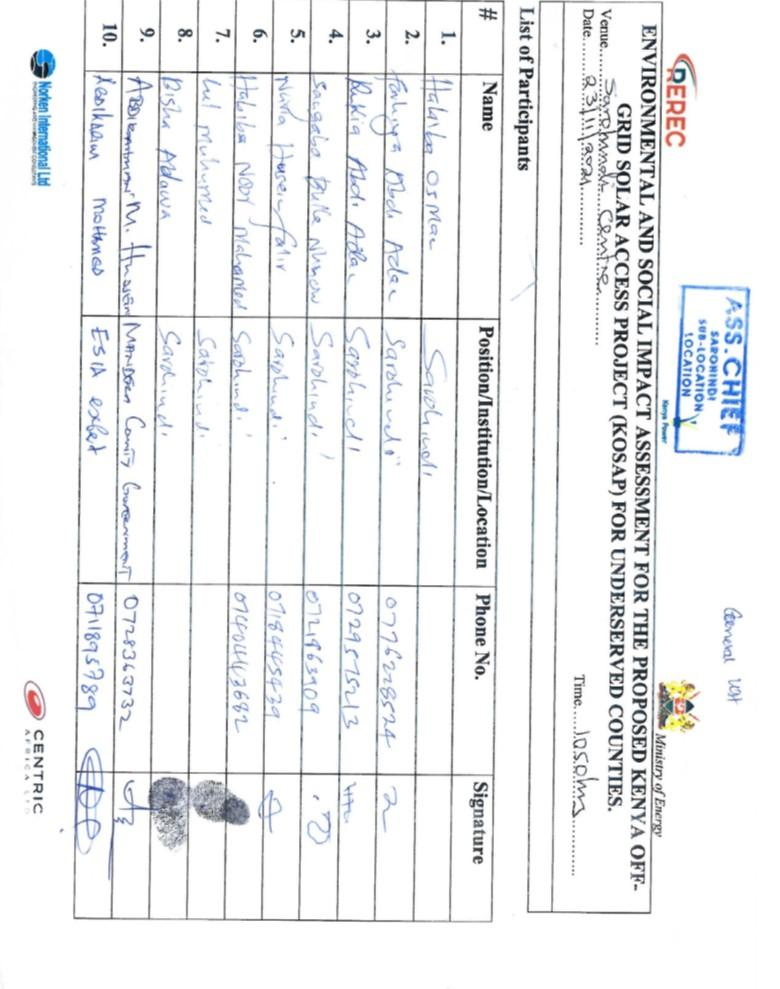 General list
REREC
ASS. CHIEF
SAROHINDI
SUB-LOCATION
LOCATION
Kenya Power
Ministry of Energy
ENVIRONMENTAL AND SOCIAL IMPACT ASSESSMENT FOR THE PROPOSED KENYA OFF-
GRID SOLAR ACCESS PROJECT (KOSAP) FOR UNDERSERVED COUNTIES.
Venue....Sarohindi Centre.............
Date.....23/11/2021............ Time.....1050hrs............
List of Participants
# Name Position/Institution/Location Phone No. Signature
1. Habiba Osman Sarohindi
2. Abdi Adan Sarohindi 0776228524
3. Rukia Abdi Adan Sarohindi 0729575213
4. Bulle Sarohindi 0721863909
5. Nuria Sarohindi 0718445439
6. Habiba Noor Mohamed Sarohindi 0740443682
7. Mohamed Sarohindi
8. Bisha Adawa Sarohindi
9. Abdirahman M. Hussein Mandera County Government 0728363732
10. Abdikadir Mohamed ESIA expert 0711895789
Norken International Ltd
CENTRIC
AFRICA LTD